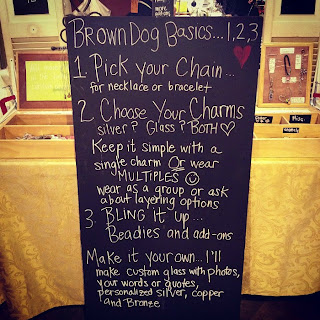 Brown Dog Basics... 1, 2, 3
1. Pick Your Chain...
for necklace or bracelet
2. Choose Your Charms
silver? Glass? BOTH ♡
Keep it simple with a
single charm Or wear
MULTIPLES ☺
wear as a group or ask
about layering options
3. Bling it up...
Beadies and add-ons
Make it your own... I'll
make custom glass with photos,
your words or quotes,
personalized silver, copper
and Bronze
Misc.